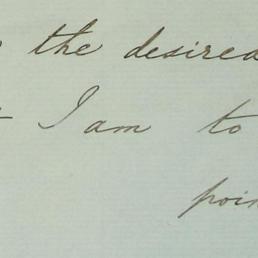 the desired
I am to
poin